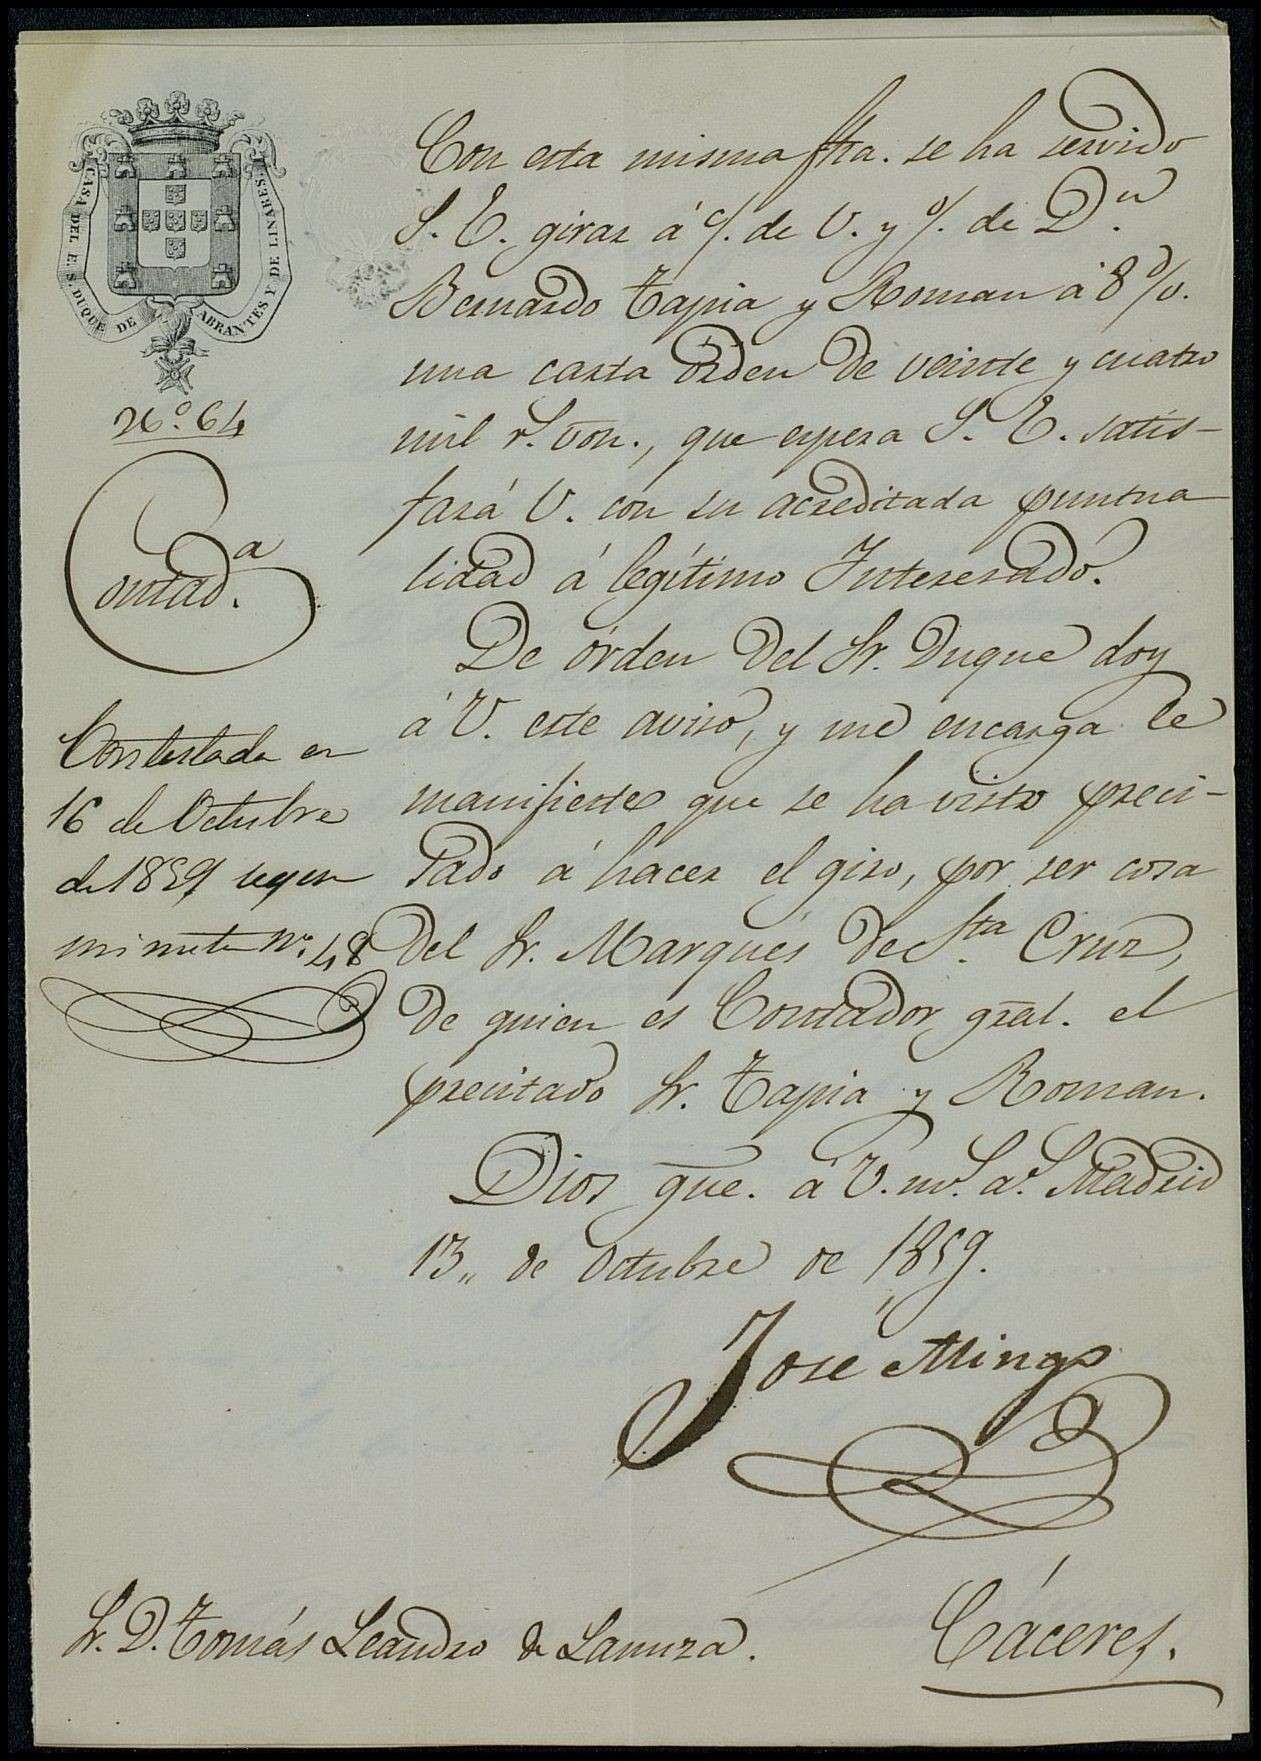 CASA DEL E. S. DUQUE DE ABRANTES Y DE LINARES.
Nº. 64
Contadª.
Contestada en
16 de Octubre
de 1859 segun
minuta nº. 48
Con esta misma fha. se ha servido
S. E. girar á c/. de V. y o/. de Dⁿ.
Bernardo Tapia y Roman á 8 d/v.
una carta órden de veinte y cuatro
mil rˢ. von., que espera S. E. satis-
fará V. con su acreditada puntua
lidad á legítimo Interesado.
De órden del Sr. Duque doy
á V. este aviso, y me encarga le
manifieste que se ha visto preci-
sado á hacer el giro, por ser cosa
del Sr. Marqués de Sta. Cruz,
de quien es Contador gral. el
precitado Sr. Tapia y Roman.
Dios gue. á V. mˢ. aˢ. Madrid
13,, de Octubre de 1859.
José Mingo
Sr. D. Tomás Leandro de Lanuza.
Cáceres.